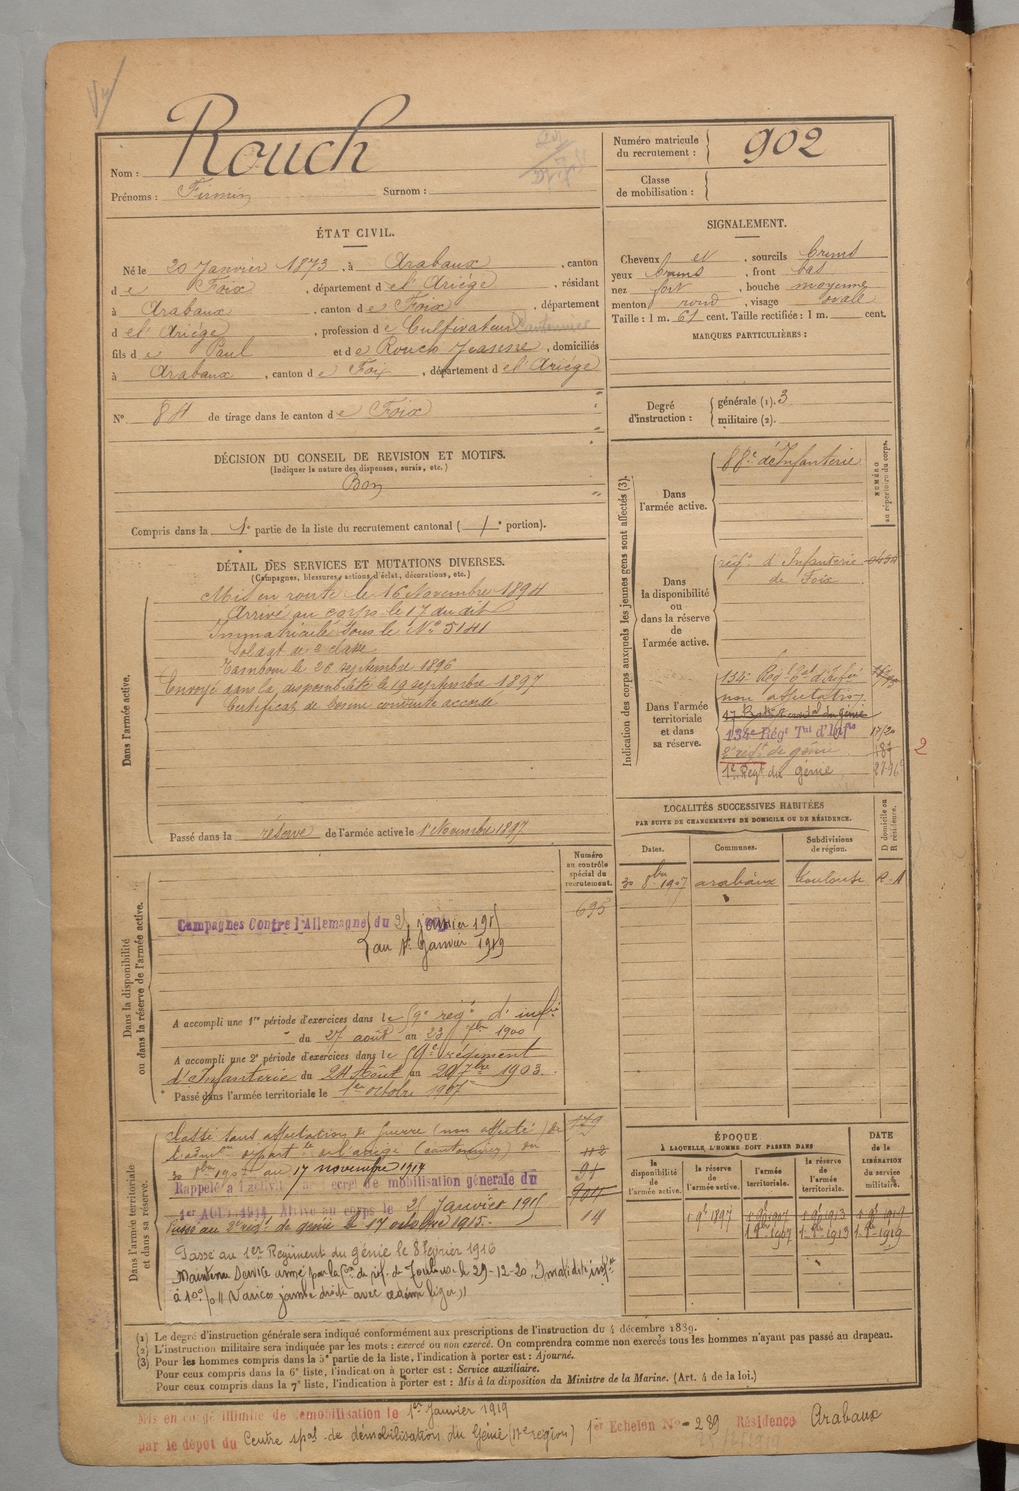 Nom : Rouch
Prénoms : Firmin Surnom :
Numéro matricule du recrutement : 902
Classe de mobilisation :
ÉTAT CIVIL.
Né le 20 Janvier 1873, à Arabaux, canton
de Foix, département de l'Ariège, résidant
à Arabaux, canton de Foix, département
de l'Ariège, profession de Cultivateur Cantonnier
fils de Paul et de Rouch Jeanne, domiciliés
à Arabaux, canton de Foix, département de l'Ariège
N° 84 de tirage dans le canton de Foix
SIGNALEMENT.
Cheveux et, sourcils bruns
yeux bruns, front bas
nez fort, bouche moyenne
menton rond, visage ovale
Taille : 1 m. 61 cent. Taille rectifiée : 1 m. cent.
MARQUES PARTICULIÈRES :
Degré d'instruction : générale (1). 3
militaire (2).
DÉCISION DU CONSEIL DE REVISION ET MOTIFS.
(Indiquer la nature des dispenses, sursis, etc.)
Bon
Compris dans la 1e partie de la liste du recrutement cantonal ( 1e portion).
DÉTAIL DES SERVICES ET MUTATIONS DIVERSES.
(Campagnes, blessures, actions d'éclat, décorations, etc.)
Dans l'armée active.
Mis en route le 16 Novembre 1894
Arrivé au corps le 17 du dit
Immatriculé sous le N° 5141
Soldat de 2e classe
Tambour le 26 septembre 1896
Envoyé dans la disponibilité le 19 septembre 1897
Certificat de bonne conduite accordé
Passé dans la réserve de l'armée active le 1er Novembre 1897
Indication des corps auxquels les jeunes gens sont affectés (3).
NUMÉRO au répertoire du corps.
Dans l'armée active.
88e d'Infanterie
Dans la disponibilité ou dans la réserve de l'armée active.
régt d'Infanterie
de Foix
Dans l'armée territoriale et dans sa réserve.
134e Régt tal d'Infie
non affectation
134e Régt Tal d'Infie 17/20
2e régt de génie 187 2
1er Régt du génie
LOCALITÉS SUCCESSIVES HABITÉES
PAR SUITE DE CHANGEMENTS DE DOMICILE OU DE RÉSIDENCE.
Dates. Communes. Subdivisions de région. D domicile ou R résidence.
30 8bre 1907 arabaux Toulouse R.
Numéro au contrôle spécial du recrutement.
695
Dans la disponibilité ou dans la réserve de l'armée active.
Campagnes Contre l'Allemagne du 2 janvier 191
au 1er Janvier 1919
A accompli une 1re période d'exercices dans le 59e régt d'infie
du 27 août au 23 7bre 1900
A accompli une 2e période d'exercices dans le 59e régiment
d'Infanterie du 24 Août au 20 7bre 1903.
Passé dans l'armée territoriale le 1er octobre 1907
Dans l'armée territoriale et dans sa réserve.
Classé sans affectation de Guerre (non affecté) de
l'admon départle de l'ariège (cantonnier) du
au 17 novembre 1914
Rappelé à l'activité decret de mobilisation générale du
1er AOUT 1914. Arrivé au corps le 2 Janvier 1915
Passé au 2e régt de génie le 17 octobre 1915.
Passé au 1er Regiment du génie le 8 fevrier 1916
Maintenu Service armé par la Con de réf. de Toulouse le 29-12-20. Invalidité infre
à 10% "Varices jambe droite avec œdème léger"
112
91
14
ÉPOQUE
À LAQUELLE L'HOMME DOIT PASSER DANS
DATE de la LIBÉRATION du service militaire.
la disponibilité de l'armée active. la réserve de l'armée active. l'armée territoriale. la réserve de l'armée territoriale.
1 9bre 1897 1 9bre 1907 1 9bre 1913 1 9bre 1919
1 8bre 1907 1 8bre 1913 1 8bre 1919
(1) Le degré d'instruction générale sera indiqué conformément aux prescriptions de l'instruction du 4 décembre 1889.
(2) L'instruction militaire sera indiquée par les mots : exercé ou non exercé. On comprendra comme non exercés tous les hommes n'ayant pas passé au drapeau.
(3) Pour les hommes compris dans la 5e partie de la liste, l'indication à porter est : Ajourné.
Pour ceux compris dans la 6e liste, l'indication à porter est : Service auxiliaire.
Pour ceux compris dans la 7e liste, l'indication à porter est : Mis à la disposition du Ministre de la Marine. (Art. 4 de la loi.)
Mis en congé illimité de démobilisation le 1er Janvier 1919
par le dépôt du Centre spal de démobilisation du Génie (17e région) 1er Echelon N° 289 Résidence Arabaux